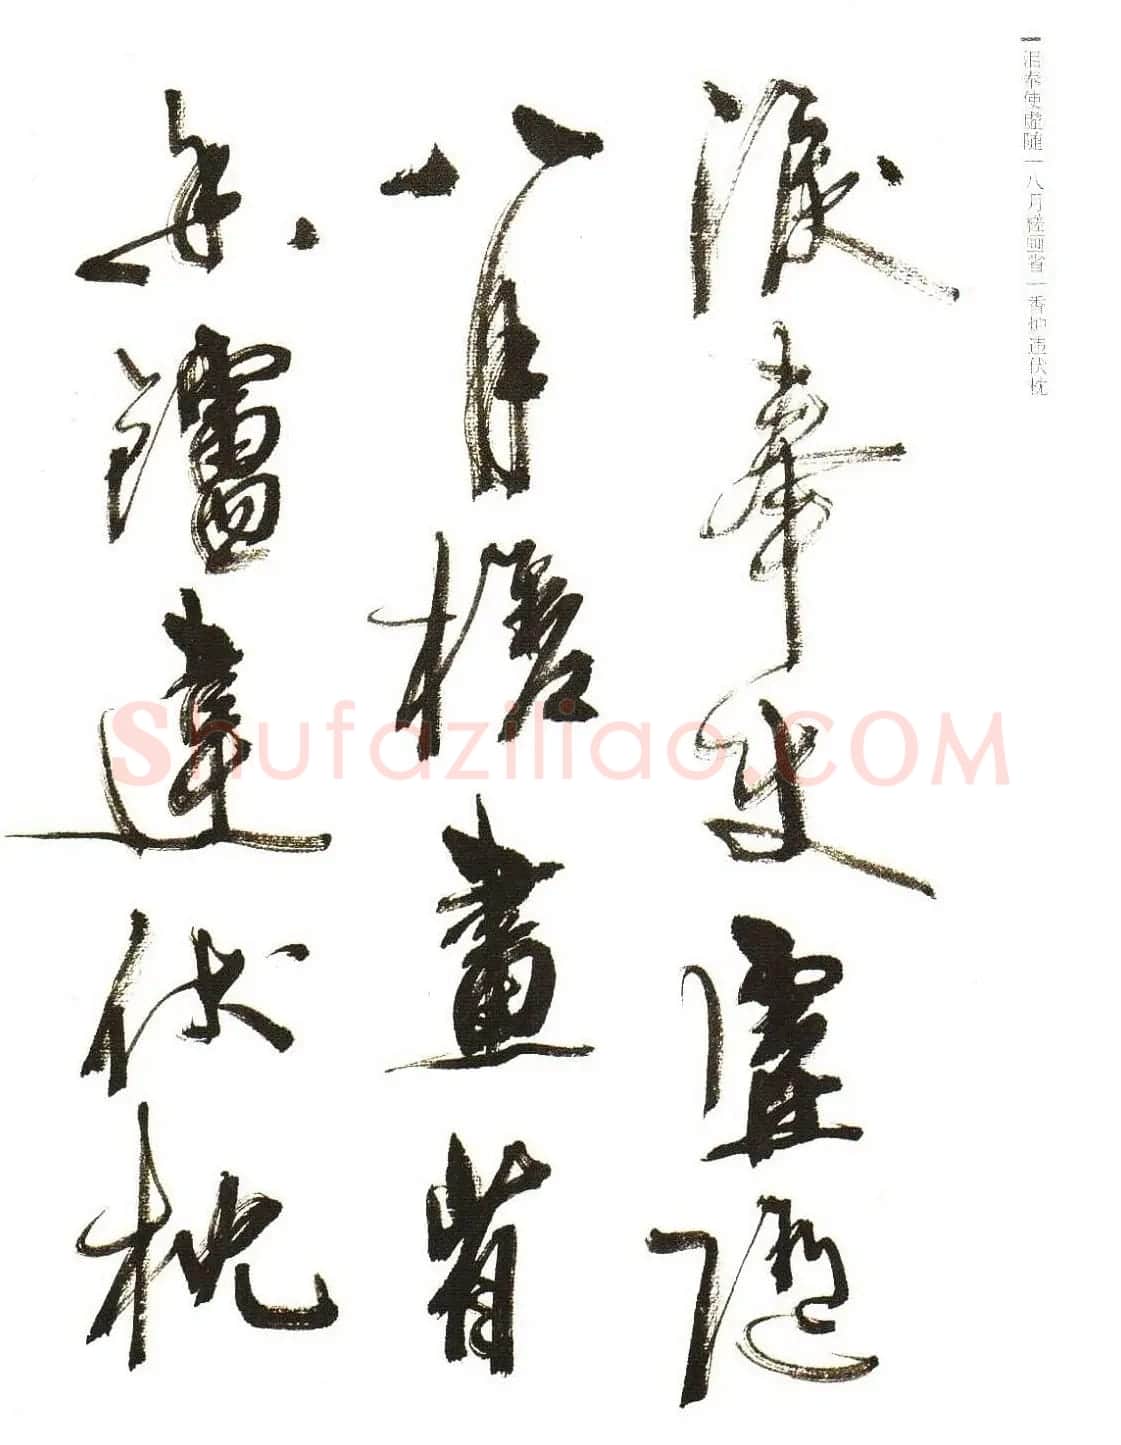 泪奉使虚随一八月槎画省一香炉违伏枕
淚奉使虛隨
八月槎畫省
香爐違伏枕
Shufaziliao.COM